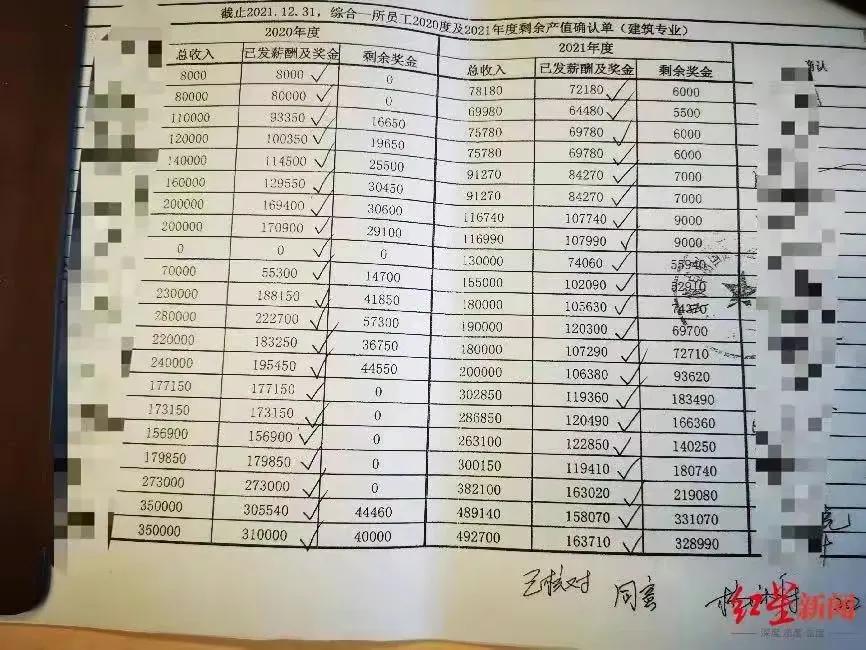 截止2021.12.31，综合一所员工2020度及2021年度剩余产值确认单（建筑专业）
2020年度 2021年度
总收入 已发薪酬及奖金 剩余奖金 总收入 已发薪酬及奖金 剩余奖金 确认
8000 8000 0 78180 72180 6000
80000 80000 0 69980 64480 5500
110000 93350 16650 75780 69780 6000
120000 100350 19650 75780 69780 6000
140000 114500 25500 91270 84270 7000
160000 129550 30450 91270 84270 7000
200000 169400 30600 116740 107740 9000
200000 170900 29100 116990 107990 9000
0 0 0 130000 74060 55940
70000 55300 14700 155000 102090 52910
230000 188150 41850 180000 105630 74370
280000 222700 57300 190000 120300 69700
220000 183250 36750 180000 107290 72710
240000 195450 44550 200000 106380 93620
177150 177150 0 302850 119360 183490
173150 173150 0 286850 120490 166360
156900 156900 0 263100 122850 140250
179850 179850 0 300150 119410 180740
273000 273000 0 382100 163020 219080
350000 305540 44460 489140 158070 331070
350000 310000 40000 492700 163710 328990
已核对 同意
红星新闻
深度 态度 温度